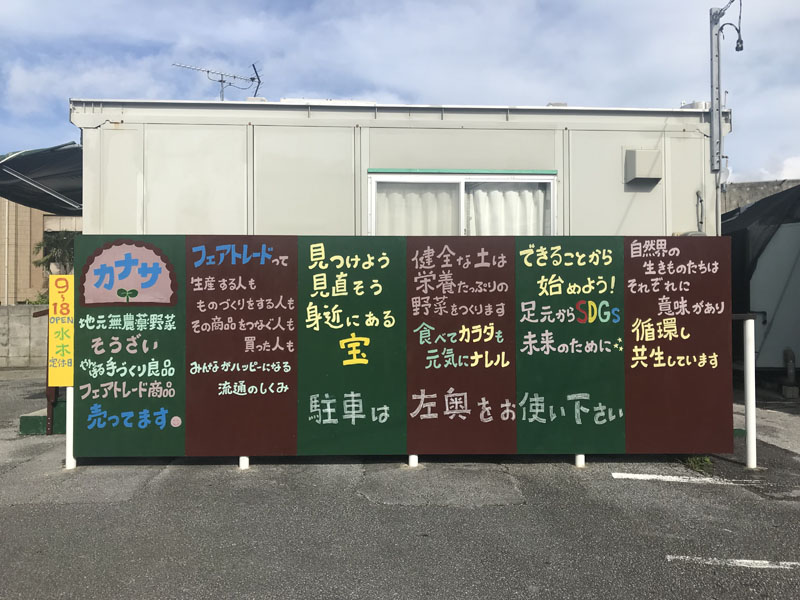 9~18
OPEN
水木
定休日
カナサ
地元無農薬野菜
そうざい
手づくり良品
フェアトレード商品
売ってます
フェアトレードって
生産する人も
ものづくりをする人も
その商品をつなぐ人も
買った人も
みんながハッピーになる
流通のしくみ
見つけよう
見直そう
身近にある
宝
健全な土は
栄養たっぷりの
野菜をつくります
食べてカラダも
元気にナレル
できることから
始めよう!
足元からSDGs
未来のために
自然界の
生きものたちは
それぞれに
意味があり
循環し
共生しています
駐車は左奥をお使い下さい